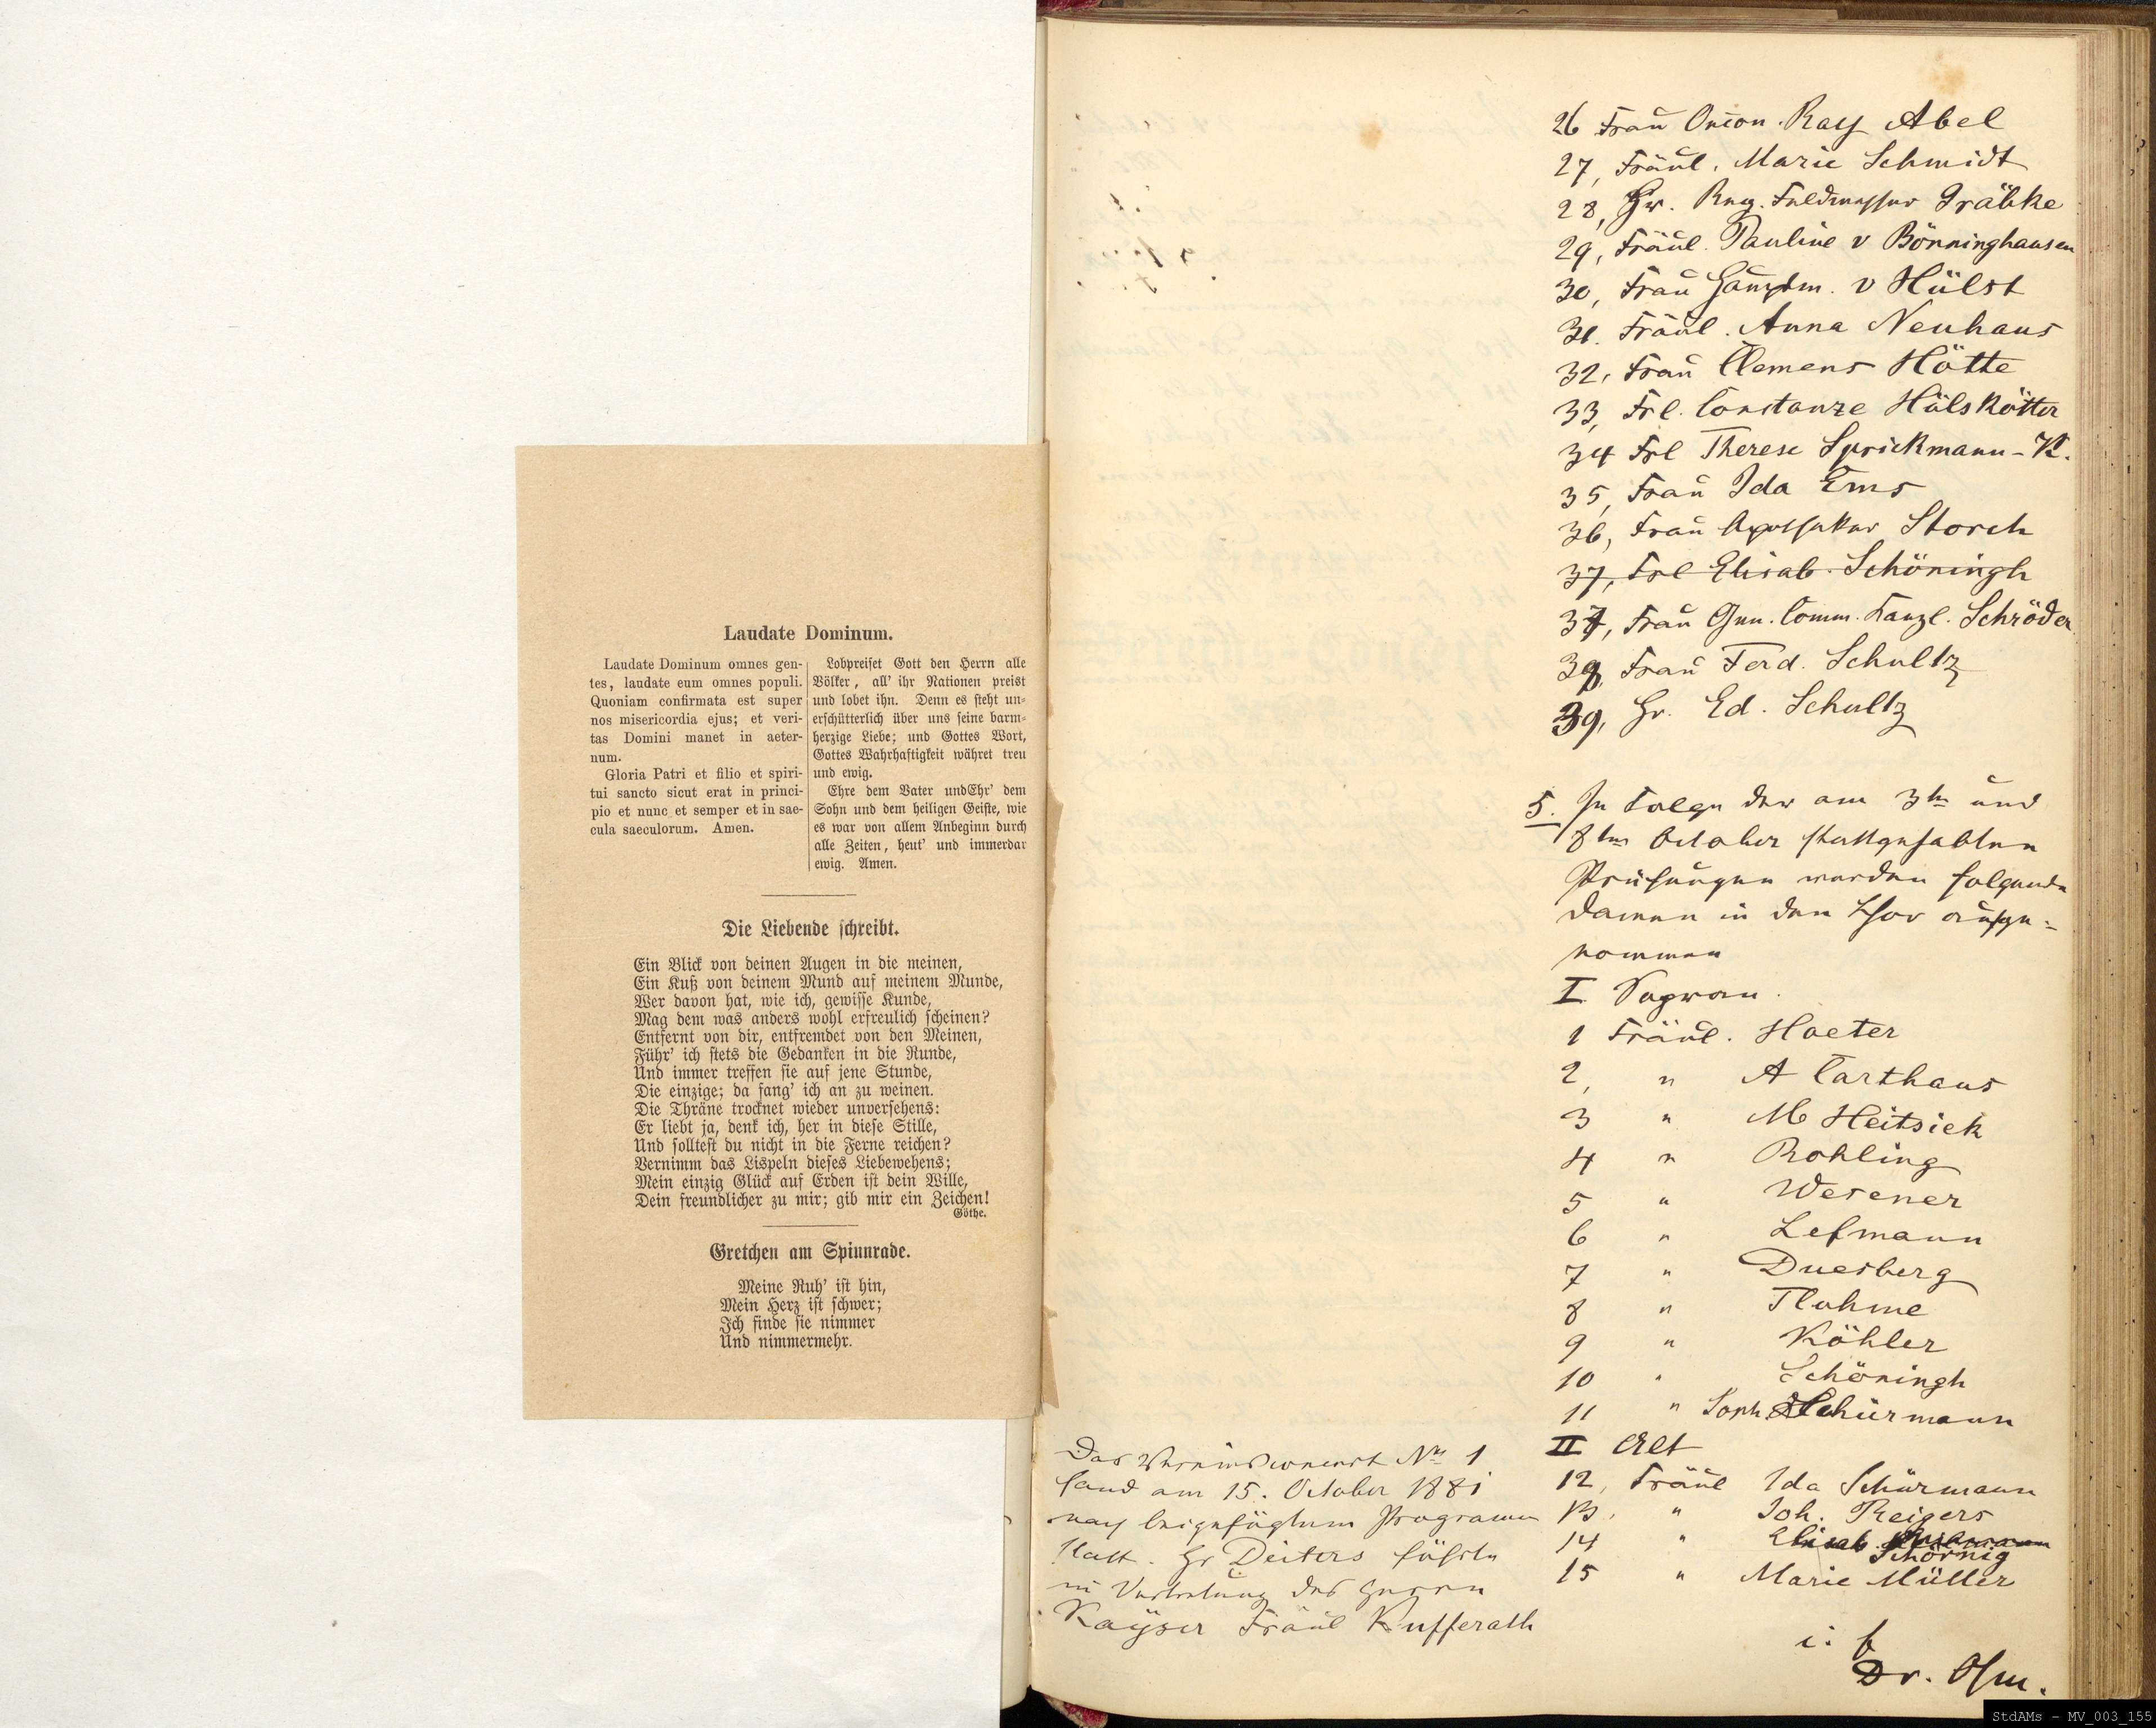 Laudate Dominum.
Laudate Dominum omnes gen-
tes, laudate eum omnes populi.
Quoniam confirmata est super
nos misericordia ejus; et veri-
tas Domini manet in aeter-
num.
Gloria Patri et filio et spiri-
tui sancto sicut erat in princi-
pio et nunc et semper et in sae-
cula saeculorum. Amen.
Lobpreiset Gott den Herrn alle
Völker, all' ihr Nationen preist
und lobet ihn. Denn es steht un-
erschütterlich über uns seine barm-
herzige Liebe; und Gottes Wort,
Gottes Wahrhaftigkeit währet treu
und ewig.
Ehre dem Vater undEhr' dem
Sohn und dem heiligen Geiste, wie
es war von allem Anbeginn durch
alle Zeiten, heut' und immerdar
ewig. Amen.
Die Liebende schreibt.
Ein Blick von deinen Augen in die meinen,
Ein Kuß von deinem Mund auf meinem Munde,
Wer davon hat, wie ich, gewisse Kunde,
Mag dem was anders wohl erfreulich scheinen?
Entfernt von dir, entfremdet von den Meinen,
Führ' ich stets die Gedanken in die Runde,
Und immer treffen sie auf jene Stunde,
Die einzige; da fang' ich an zu weinen.
Die Thräne trocknet wieder unversehens:
Er liebt ja, denk ich, her in diese Stille,
Und solltest du nicht in die Ferne reichen?
Vernimm das Lispeln dieses Liebewehens;
Mein einzig Glück auf Erden ist dein Wille,
Dein freundlicher zu mir; gib mir ein Zeichen!
Göthe.
Gretchen am Spinnrade.
Meine Ruh' ist hin,
Mein Herz ist schwer;
Ich finde sie nimmer
Und nimmermehr.
Das Vereinsconcert No 1
fand am 15. October 1881
nach beigefügtem Programm
statt. Hr Deiters führte
in Vertretung des Herrn
Kayser Fräul Kufferath
26 Frau Abel
27, Fräul. Marie Schmidt
28, Hr. Reg. Feldmesser Gräbke
29, Fräul. Pauline v Bönninghausen
30, Frau Hauptm. v Hülst
31. Fräul. Anna Neuhaus
32, Frau Clemens Hötte
33, Frl. Constanze Hülskötter
34 Frl Therese Sprickmann-K.
35, Frau Ida Ems
36, Frau Apotheker Storch
37, Frl Elisab. Schöningh
37, Frau Gen. Comm. Kanzl. Schröder
38, Frau Ferd. Schultz
39, Hr. Ed. Schultz
5. In Folge der am 3ten und
8ten October stattgehabten
Prüfungen wurden folgende
Damen in den Chor aufge-
nommen
I Sopran.
1 Fräul. Hoeter
2, " A Carthaus
3 " M Heitsiek
4 " Rohling
5 " Wesener
6 " Lefmann
7 " Duesberg
8 " Fluhme
9 " Köhler
10 " Schöningh
11 " Soph. Schürmann
II Alt
12, Fräul Ida Schürmann
13, " Joh. Reigers
14 " Elisab. Schörnig
15 " Marie Müller
i. f
Dr. Ohm.
StdAMs - MV_003_155